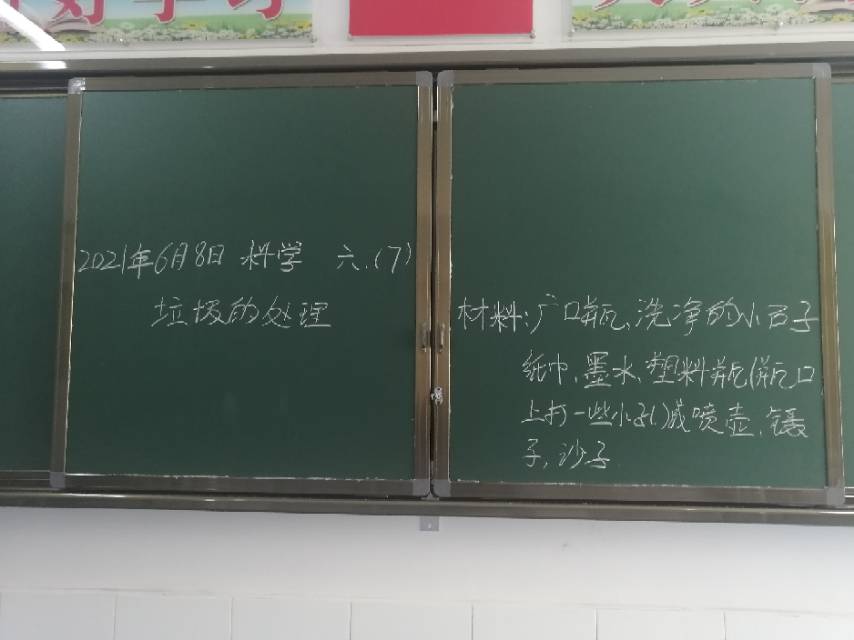 好学习
2021年6月8日 科学 六.(7)
垃圾的处理
材料:广口瓶、洗净的小石子
纸巾、墨水、塑料瓶(瓶口
上打一些小孔)或喷壶、镊
子,沙子